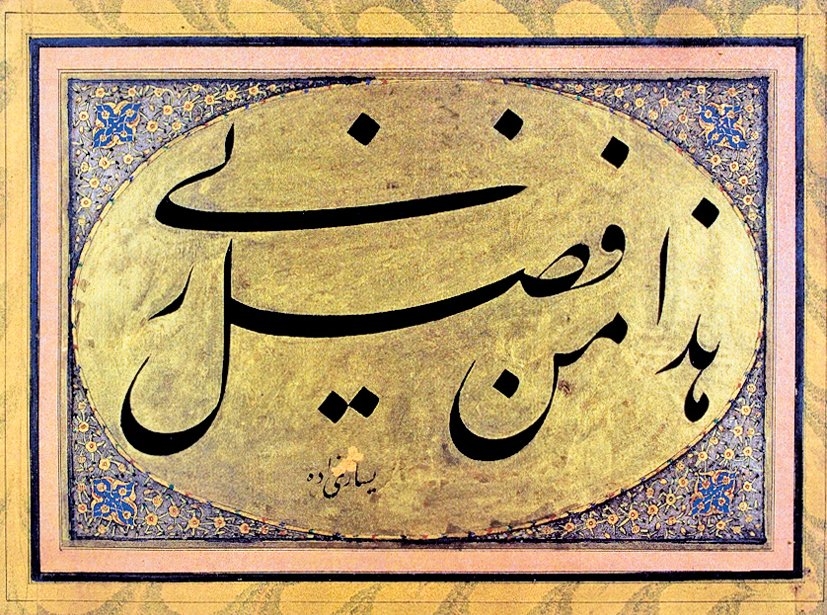 هذا من فضل ربی
یساری زاده